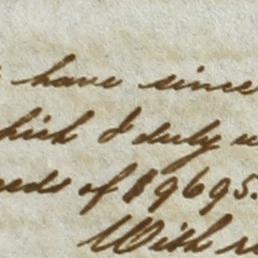 have since
which I duly
eeds of $9695.
With r